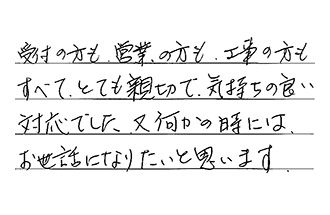 受付の方も、営業の方も、工事の方も
すべて、とても親切で、気持ちの良い
対応でした。又何かの時には、
お世話になりたいと思います。